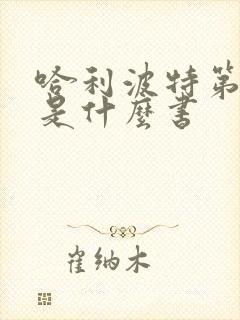 哈利波特第
是什麼书
崔纳木